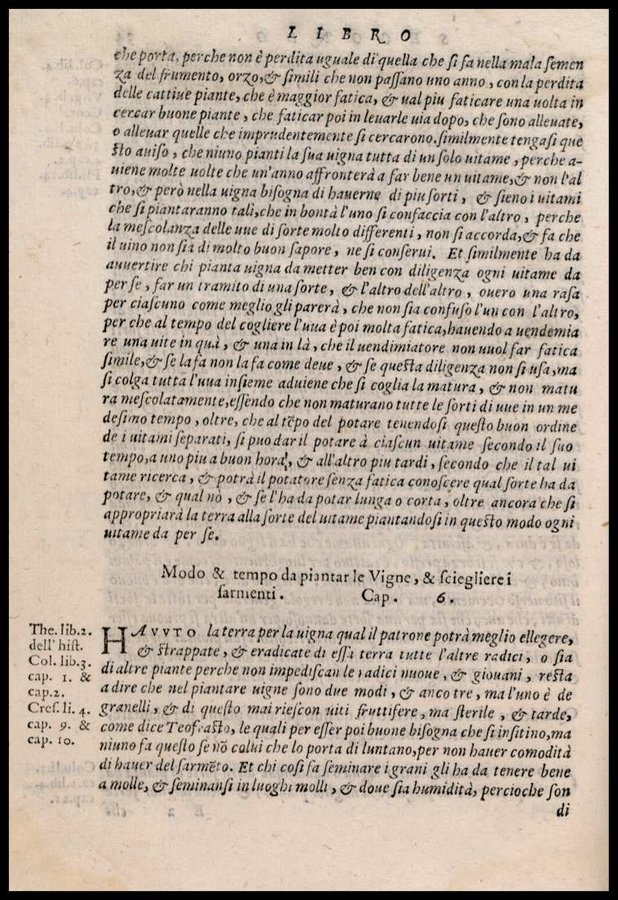 LIBRO
che porta, perche non è perdita uguale di quella che si fa nella mala semen
za del frumento, orzo,& simili che non passano uno anno, con la perdita
delle cattiue piante, che è maggior fatica, & ual piu faticare una uolta in
cercar buone piante, che faticar poi in leuarle uia dopo, che sono alleuate,
o alleuar quelle che imprudentemente si cercarono.similmente tengasi que
sto auiso, che niuno pianti la sua uigna tutta di un solo uitame, perche a-
uiene molte uolte che un'anno affronterà a far bene un uitame,& non l'al
tro,& però nella uigna bisogna di hauerne di piu sorti, & sieno i uitami
che si piantaranno tali,che in bontà l'uno si confaccia con l'altro, perche
la mescolanza delle uue di sorte molto differenti, non si accorda,& fa che
il uino non sia di molto buon sapore, ne si conserui. Et similmente ha da
auuertire chi pianta uigna da metter ben con diligenza ogni uitame da
per se, far un tramito di una sorte, & l'altro dell'altro, ouero una rasa
per ciascuno come meglio gli parerà, che non sia confuso l'un con l'altro,
per che al tempo del cogliere l'uua è poi molta fatica,hauendo a uendemia
re una uite in quà, & una in là, che il uendimiatore non uuol far fatica
simile,& se la fa non la fa come deue, & se questa diligenza non si usa,ma
si colga tutta l'uua insieme aduiene che si coglia la matura, & non matu
ra mescolatamente,essendo che non maturano tutte le sorti di uue in un me
desimo tempo, oltre, che al tẽpo del potare tenendosi questo buon ordine
de i uitami separati, si puo dar il potare à ciascun uitame secondo il suo
tempo,a uno piu a buon hora, & all'altro piu tardi, secondo che il tal ui
tame ricerca, & potrà il potatore senza fatica conoscere qual sorte ha da
potare, & qual nò, & se l'ha da potar lunga o corta, oltre ancora che si
appropriarà la terra alla sorte del uitame piantandosi in questo modo ogni
uitame da per se.
Modo & tempo da piantar le Vigne, & sciegliere i
sarmenti. Cap. 6.
The. lib.2.
dell' hist.
Col. lib.3.
cap. 1. &
cap.2.
Cres. li. 4.
cap. 9. &
cap. 10.
HAVVTO la terra per la uigna qual il patrone potrà meglio ellegere,
& strappate, & eradicate di essa terra tutte l'altre radici, o sia
di altre piante perche non impediscan le radici nuoue, & giouani, resta
a dire che nel piantare uigne sono due modi, & anco tre, ma l'uno è de
granelli, & di questo mai riescon uiti fruttifere, ma sterile, & tarde,
come dice Teofrasto, le quali per esser poi buone bisogna che si insitino,ma
niuno fa questo se nõ colui che lo porta di luntano,per non hauer comodità
di hauer del sarmẽto. Et chi cosi fa seminare i grani gli ha da tenere bene
a molle, & seminansi in luoghi molli, & doue sia humidità, percioche son
di